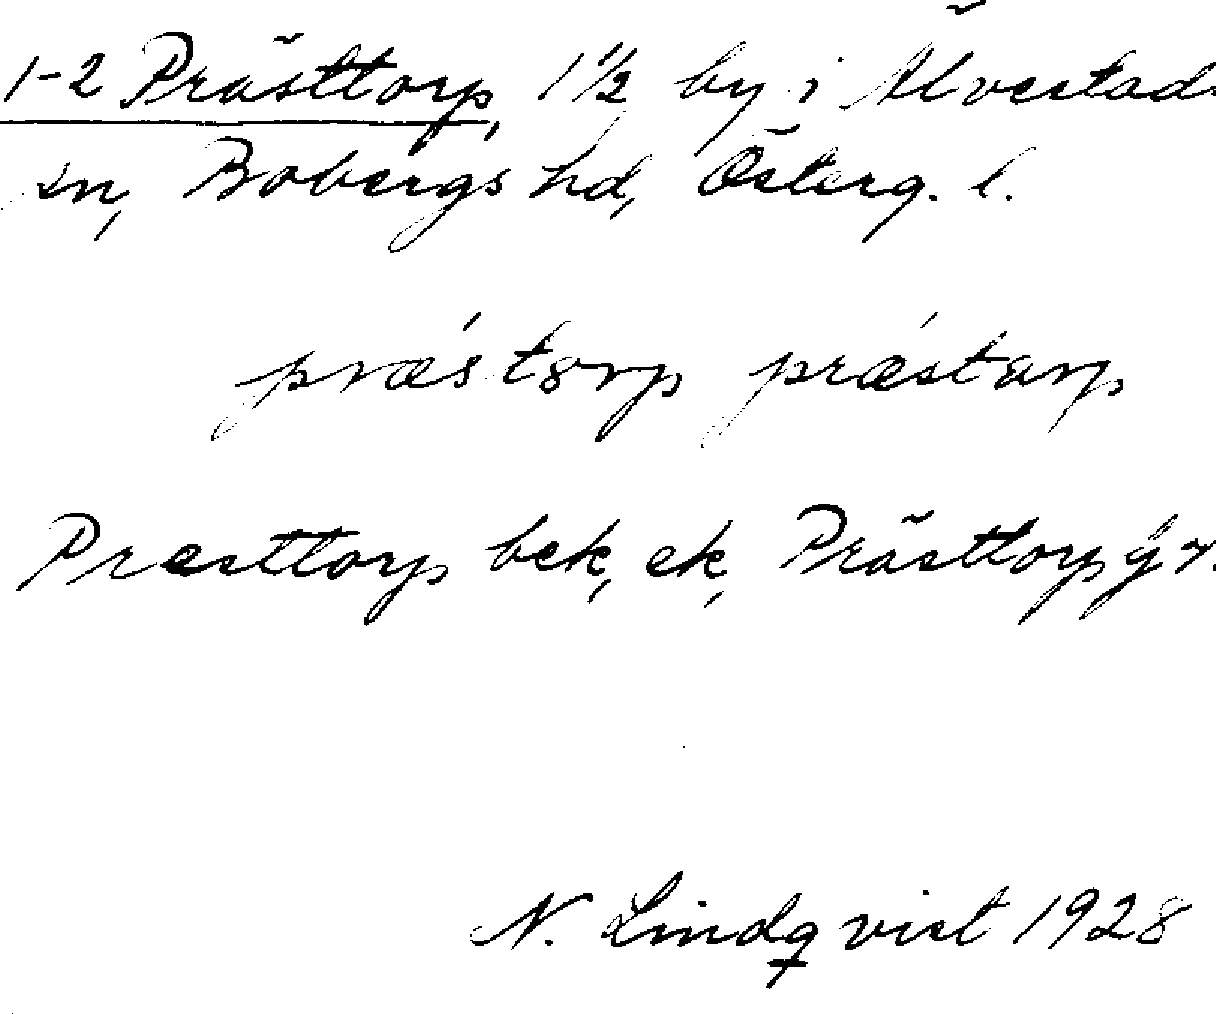 1-2 Prästtorp, 1 1/2 by i Älvestads
sn, Bobergs hd, Österg. l.
præ´storp præ´starp
Præsttorp bek, ek, Prästtorp jr.
N. Lindqvist 1928